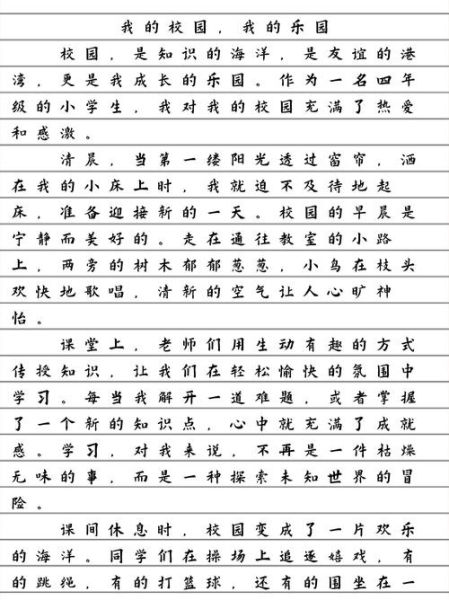 我的校园，我的乐园
校园，是知识的海洋，是友谊的港
湾，更是我成长的乐园。作为一名四年
级的小学生，我对我的校园充满了热爱
和感激。
清晨，当第一缕阳光透过窗帘，洒
在我的小床上时，我就迫不及待地起
床，准备迎接新的一天。校园的早晨是
宁静而美好的。走在通往教室的小路
上，两旁的树木郁郁葱葱，小鸟在枝头
欢快地歌唱，清新的空气让人心旷神
怡。
课堂上，老师们用生动有趣的方式
传授知识，让我们在轻松愉快的氛围中
学习。每当我解开一道难题，或者掌握
了一个新的知识点，心中就充满了成就
感。学习，对我来说，不再是一件枯燥
无味的事，而是一种探索未知世界的冒
险。
课间休息时，校园变成了一片欢乐
的海洋。同学们在操场上追逐嬉戏，有
的跳绳，有的打篮球，还有的围坐在一